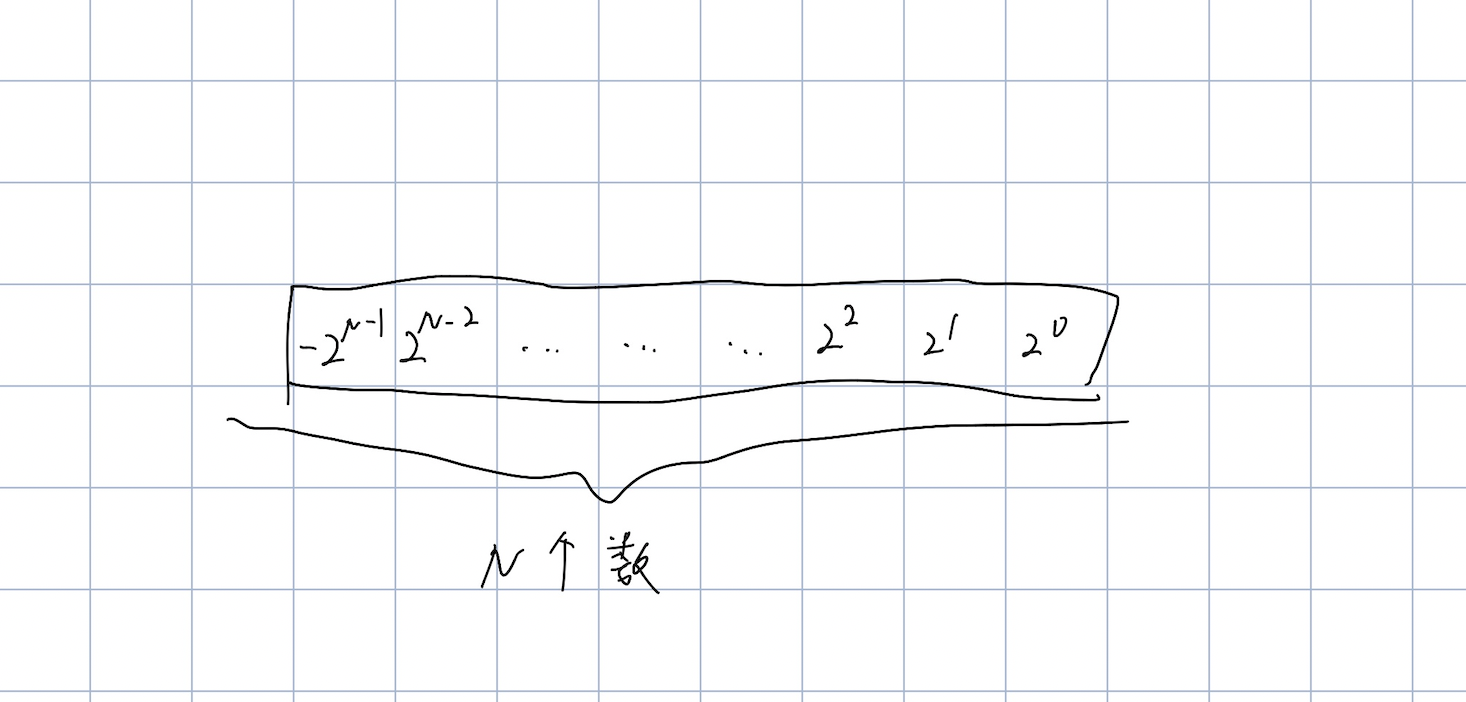 -2^{N-1} 2^{N-2} ... ... ... 2^2 2^1 2^0
N个数